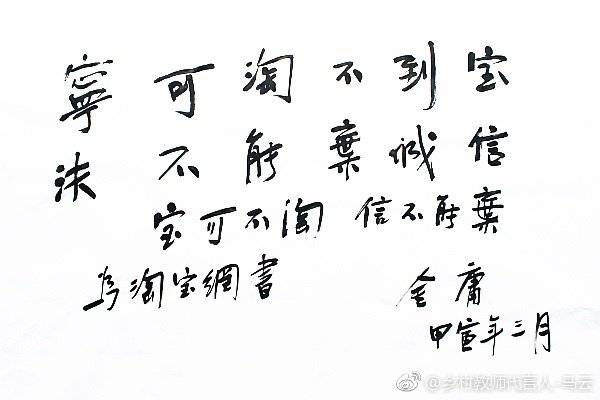 寧可淘不到宝
決不能棄诚信
宝可不淘 信不能棄
為淘宝網書
金庸
甲年三月
@乡村教师代言人-马云